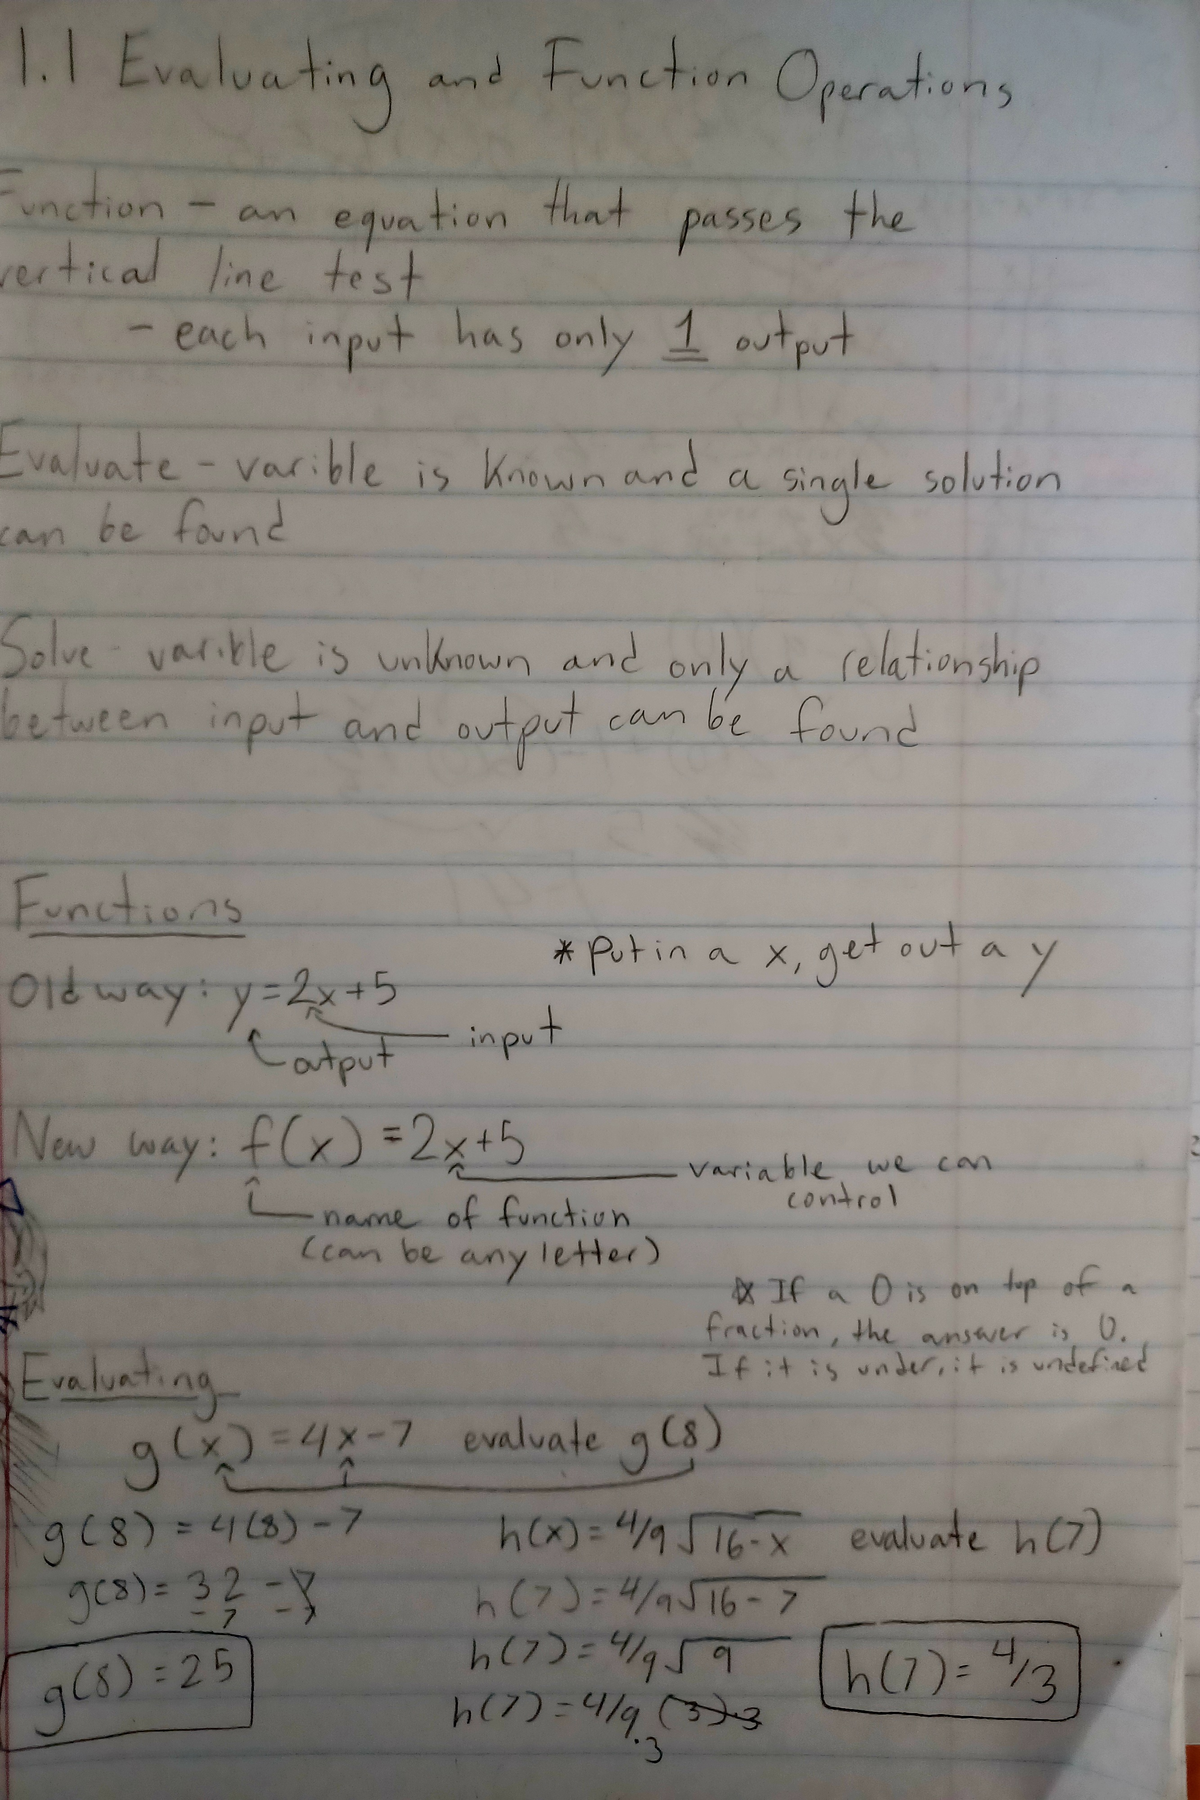 1.1 Evaluating and Function Operations
Function - an equation that passes the
vertical line test
- each input has only 1 output
Evaluate - varible is known and a single solution
can be found
Solve - varible is unknown and only a relationship
between input and output can be found
Functions
* Put in a x, get out a y
Old way: y=2x+5
input
output
New way: f(x) = 2x+5
variable we can
control
name of function
(can be any letter)
☆ If a 0 is on top of a
fraction, the answer is 0.
If it is under, it is undefined
Evaluating
g(x) = 4x-7 evaluate g(8)
g(8) = 4(8) - 7
g(8) = 32 - 7
-7 -7
g(8) = 25
h(x) = 4/9√16-x evaluate h(7)
h(7) = 4/9√16-7
h(7) = 4/9√9
h(7) = 4/9 (3)÷3
÷3
h(7) = 4/3